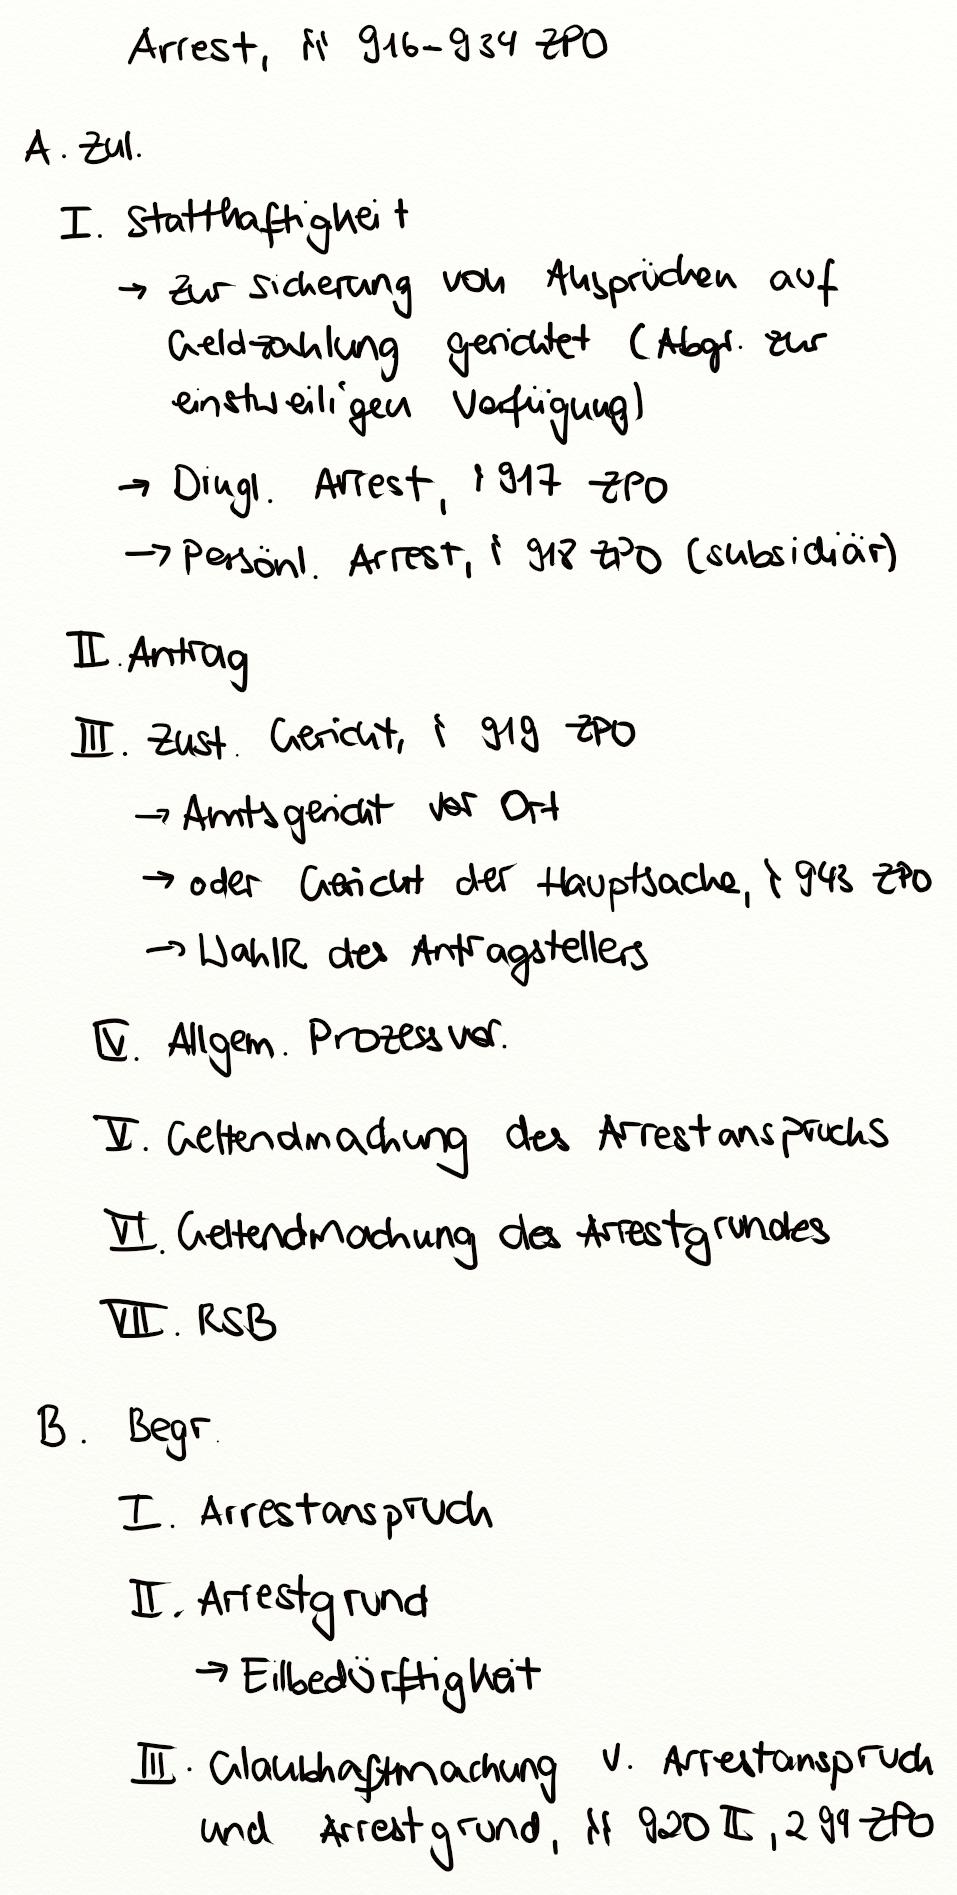 Arrest, §§ 916-934 ZPO
A. Zul.
I. Statthaftigkeit
→ zur Sicherung von Ansprüchen auf
Geldzahlung gerichtet (Abgr. zur
einstweiligen Verfügung)
→ Dingl. Arrest, § 917 ZPO
→ Persönl. Arrest, § 918 ZPO (subsidiär)
II. Antrag
III. Zust. Gericht, § 919 ZPO
→ Amtsgericht vor Ort
→ oder Gericht der Hauptsache, § 943 ZPO
→ WahlR des Antragstellers
IV. Allgem. Prozessvor.
V. Geltendmachung des Arrestanspruchs
VI. Geltendmachung des Arrestgrundes
VII. RSB
B. Begr.
I. Arrestanspruch
II. Arrestgrund
→ Eilbedürftigkeit
III. Glaubhaftmachung v. Arrestanspruch
und Arrestgrund, §§ 920 II, 294 ZPO